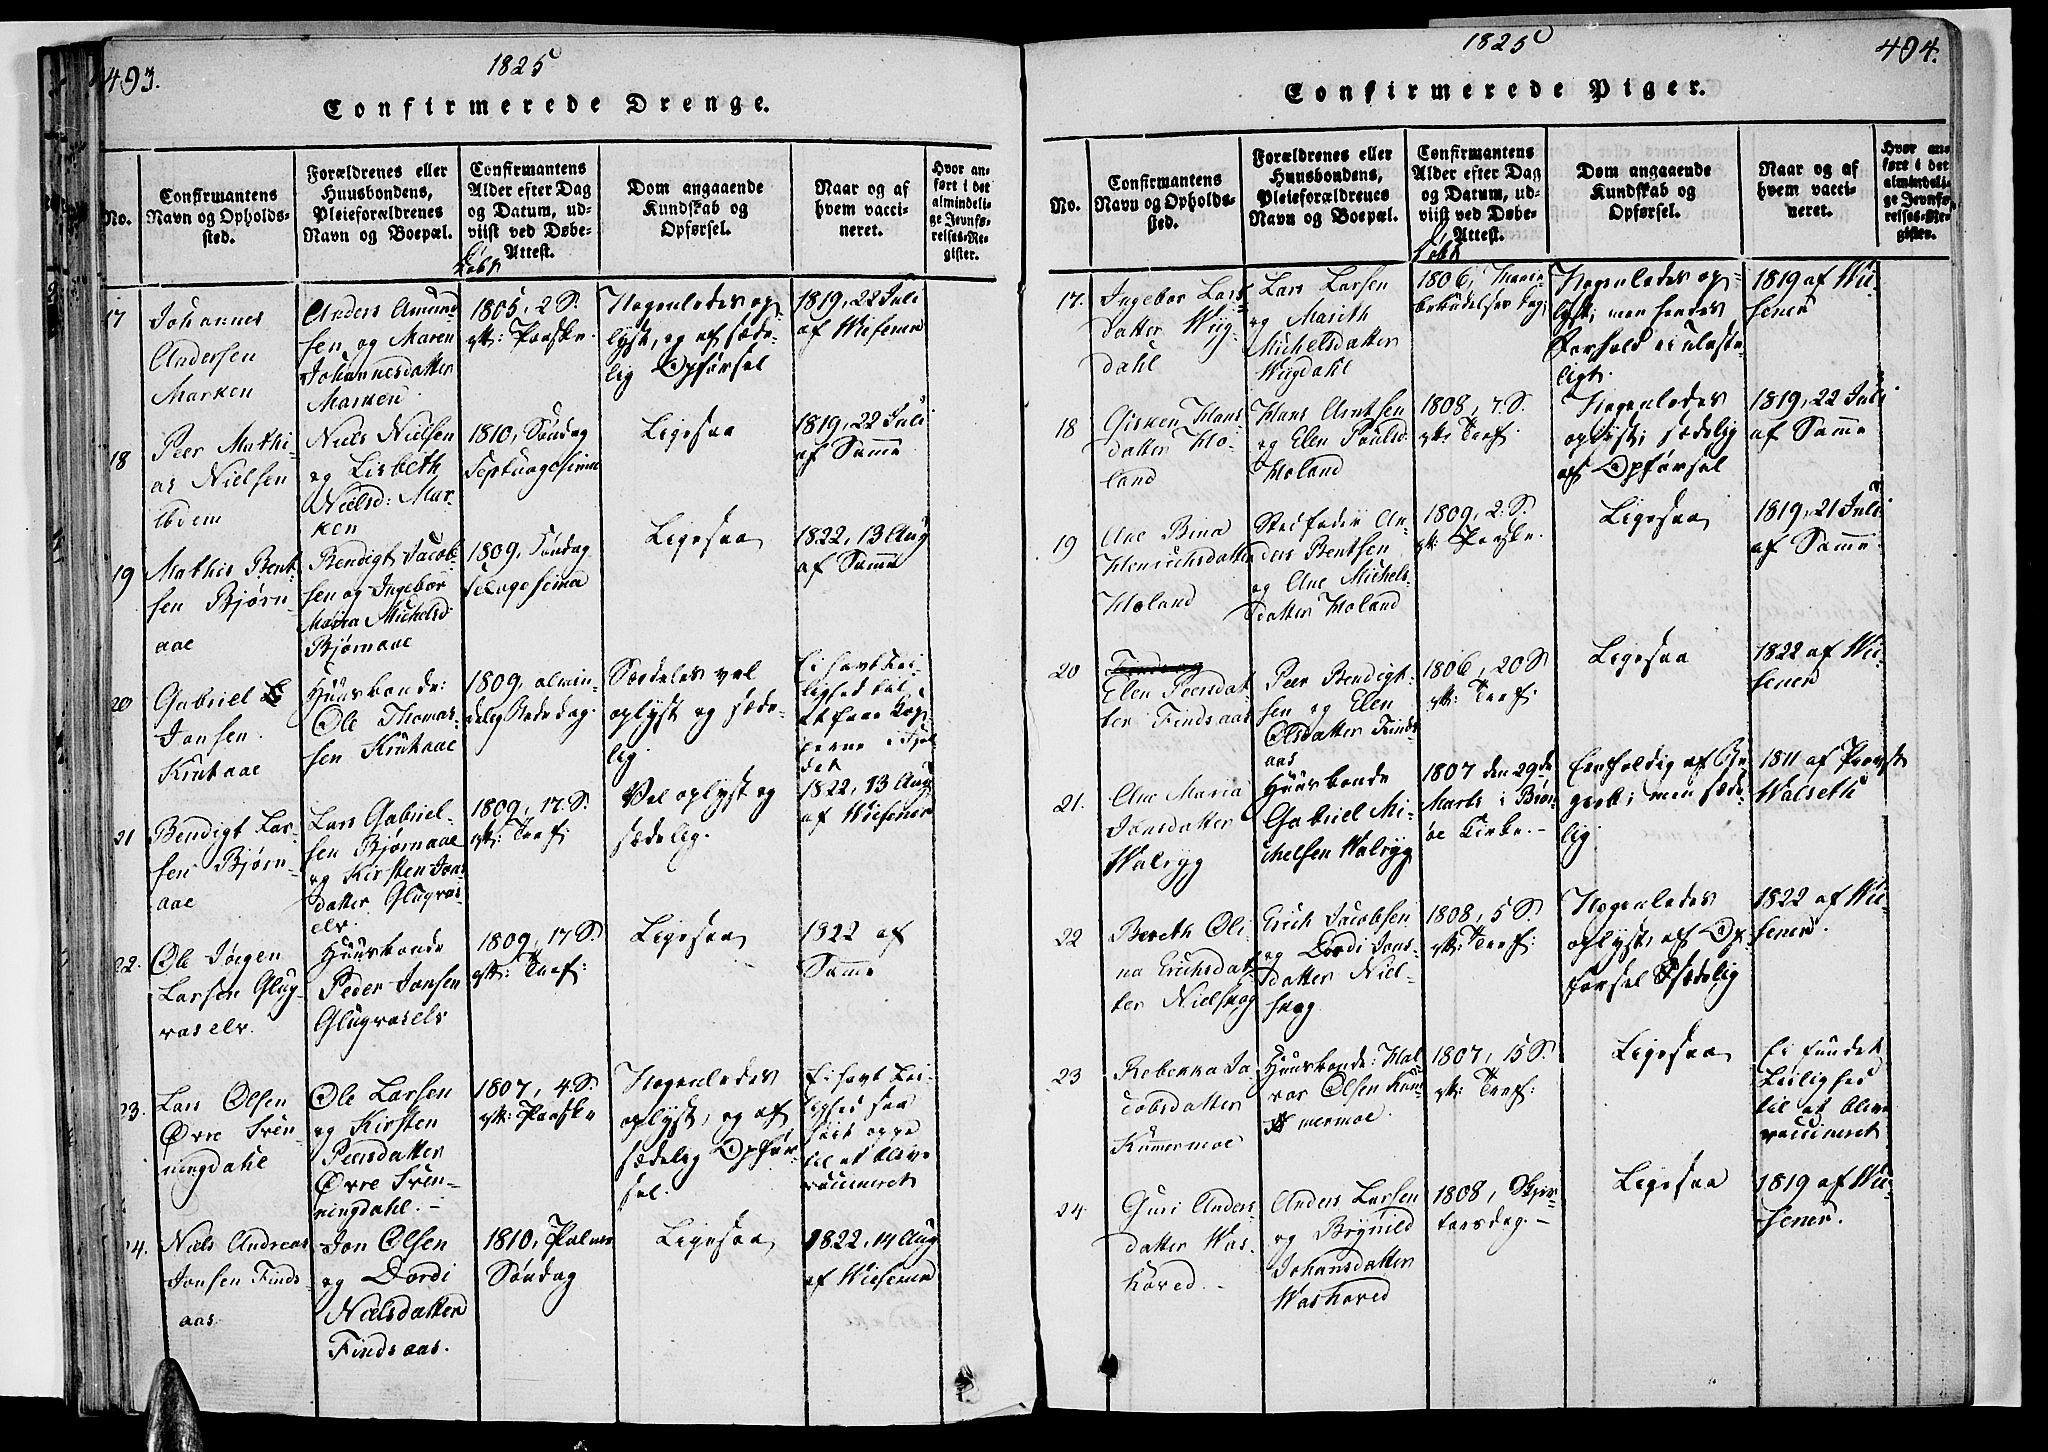 493.
1825
Confirmerede Drenge.
No.
Confirmantens
Navn og Opholds-
sted.
Forældrenes eller
Huusbondens,
Pleieforældrenes
Navn og Boepæl.
Confirmantens
Alder efter Dag
og Datum, ud-
viist ved Døbe-
Attest.
Døbt
Dom angaaende
Kundskab og
Opførsel.
Naar og af
hvem vacci-
neret.
Hvor an-
ført i det
almindeli-
ge Jevnfø-
relses-Re-
gister.
17
Johannes
Andersen
Marken
Anders Amund-
sen og Maren
Johannesdatter
Marken.
1805, 2 S.
eft: Paaske.
Nogenledes op
lyst, og af sæde-
lig Opførsel
1819, 22 Juli
af Wisener
18
Peer Mathi-
as Nielsen
ibdem
Niels Nielsen
og Lisbeth
Nielsd: Mar-
ken
1810, Søndag
Septuagesima
Ligesaa
1819, 22 Juli
af Samme
19
Mathis Bent-
sen Bjørn-
aae
Bendigt Jacob-
sen og Ingebor
Maria Michelsd
Bjørnaae
1809, Søndag
Sexagesima
Ligesaa
1822, 13 Aug
af Samme
20
Gabriel
Jonsen
Krutaae
Huusbonde:
Ole Thomas-
sen Krutaae
1809, almin-
delig Bededag.
Særdeles vel
oplyst og sæde-
lig
Ei havt Lei-
lighed til
at faae Kop-
perne i Fjel
det
21
Bendigt Lar-
sen Bjørn-
aae
Lars Gabriel-
sen Bjørnaae
og Kirsten Jons
datter Glugvas-
elv.
1809, 17. S.
eft: Tref:
Vel oplyst og
sædelig.
1822, 13 Aug
af Wisener
22.
Ole Jørgen
Larsen Glug-
vaselv.
Huusbonde
Peder Jonsen
Glugvaselv
1809, 17 S.
eft: Tref:
Ligesaa
1822 af
Samme
23.
Lars Olsen
Øvre Sven-
ningdahl
Ole Larsen
og Kirsten
Peersdatter
Øvre Sven-
ningdahl. -
1807, 4. S.
eft: Paaske
Nogenledes
oplyst, og af
sædelig Opfør-
sel.
Ei havt Lei-
lighed saa
høit oppe
til at blive
vaccineret
24.
Niels Andreas
Jonsen Finds-
aas
Jon Olsen
og Dordi
Nielsdatter
Findsaas.
1810, Palme
Søndag
Ligesaa
1822, 14 Aug
af Wisener
494.
1825
Confirmerede Piger.
No.
Confirmantens
Navn og Opholds-
sted.
Forældrenes eller
Huusbondens,
Pleieforældrenes
Navn og Boepæl.
Confirmantens
Alder efter Dag
og Datum, ud-
viist ved Døbe-
Attest.
Døbt
Dom angaaende
Kundskab og
Opførsel.
Naar og af
hvem vacci-
neret.
Hvor an-
ført i det
almindeli-
ge Jevnfø-
relses-Re-
gister.
17.
Ingebor Lars
datter Wiig-
dahl
Lars Larsen
og Marith
Michelsdatter
Wiigdahl
1806, Mariæ
bebudelses Dag
Nogenledes op-
lyst, men hendes
Forhold ei ulaste-
ligt.
1819 af Wi-
sener
18
Giören Hans
datter Ho-
land
Hans Arntsen
og Elen Poulsd
Holand
1808, 7. S.
eft: Tref:
Nogenledes
oplyst, sædelig
af Opførsel
1819, 22 Juli
af Samme
19
Ane Bina
Henrichsdatter
Holand
Stedfader An-
ders Bentsen
og Ane Michels-
datter Holand
1809, 2. S.
eft: Paaske.
Ligesaa
1819, 21 Juli
af Samme.
20
Elen Peersdat-
ter Findsaas
Peer Bendigt-
sen og Elen
Olsdatter Finds-
aas
1806, 20 S
eft: Tref:
Ligesaa
1822 af Wi-
sener
21.
Ane Maria
Jonsdatter
Walryg
Huusbonde
Gabriel Mi-
chelsen Walryg
1807 den 29de
Marts i Brøn-
öe Kirke. -
Eenfoldig af Be-
greb; men sæde-
lig.
1811 af Provst
Walseth
22
Bereth Oli
na Erichsdat-
ter Nielskog
Erich Jacobsen
og Dordi Jons-
datter Niel-
skog
1808, 5 S.
eft: Tref:
Nogenledes
oplyst, af Op-
førsel sædelig
1822 af Wi-
sener.
23
Rebekka Ja-
cobsdatter
Kummermoe
Huusbonde: Hal
vor Olsen Kum-
mermoe.
1807, 15 S.
eft: Tref:
Ligesaa
Ei fundet
Leilighed
til at blive
vaccineret
24.
Guri Anders-
datter Was-
hoved. -
Anders Larsen
og Brynild
Johansdatter
Washoved
1808, Skjer-
torsdag. -
Ligesaa
1819 af Wi-
sener.